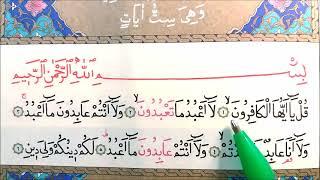 وَهِيَ سِتُّ اٰيَاتٍ
بِسْمِ اللّٰهِ الرَّحْمٰنِ الرَّحِيمِ
قُلْ يَٓا اَيُّهَا الْكَافِرُونَۙ ﴿١﴾ لَٓا اَعْبُدُ مَا تَعْبُدُونَۙ ﴿٢﴾ وَلَٓا اَنْتُمْ عَابِدُونَ مَٓا اَعْبُدُۚ ﴿٣﴾
وَلَٓا اَنَا۬ عَابِدٌ مَا عَبَدْتُمْۙ ﴿٤﴾ وَلَٓا اَنْتُمْ عَابِدُونَ مَٓا اَعْبُدُۜ ﴿٥﴾ لَكُمْ دِينُكُمْ وَلِيَ دِينِ ﴿٦﴾